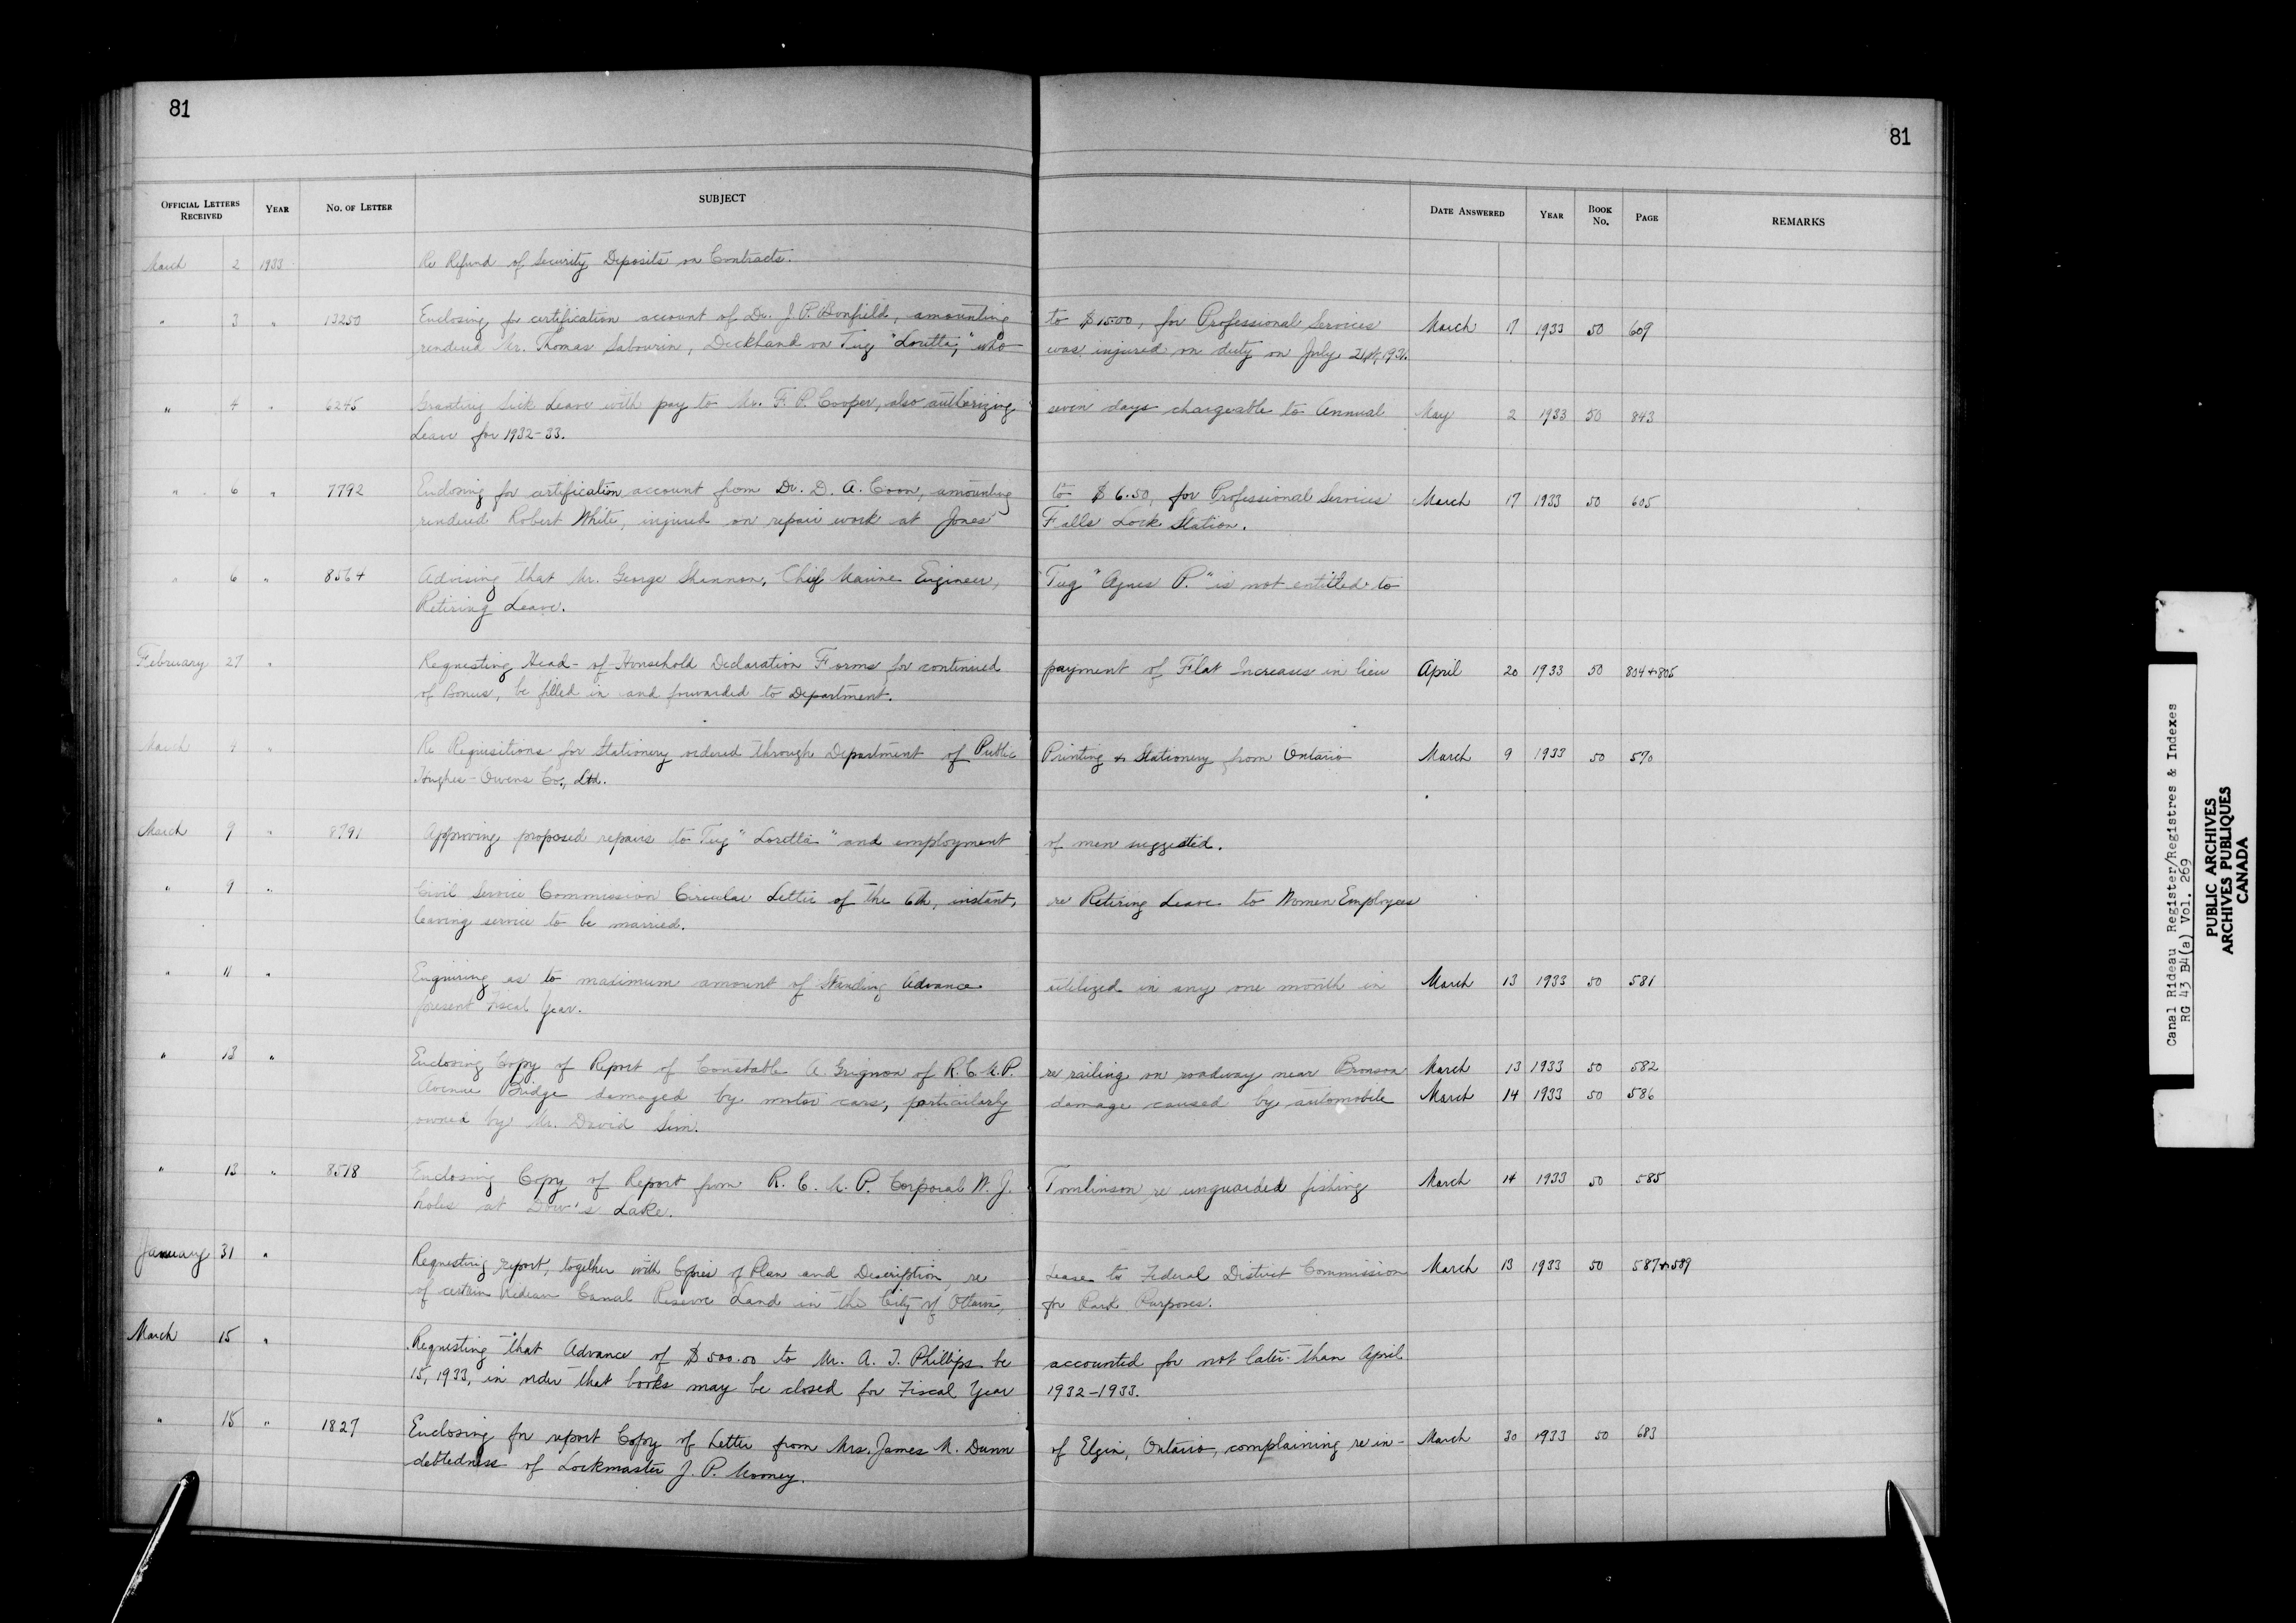 81
81
OFFICIAL LETTERS RECEIVED YEAR No. OF LETTER SUBJECT DATE ANSWERED YEAR BOOK No. PAGE REMARKS
March 2 1933 Re Refund of Security Deposits on Contracts.
" 3 " 13250 Enclosing for certification account of Dr. J. P. Bonfield, amounting to $15.00, for Professional Services March 17 1933 50 609
rendered Mr. Thomas Sabourin, Deckhand on Tug "Loretta," who was injured on duty on July 21st,
" 4 " 6245 Granting Sick Leave with pay to Mr. F. P. Cooper, also authorizing seven days chargeable to Annual May 2 1933 50 843
Leave for 1932-33.
" 6 " 7792 Enclosing for certification, account from Dr. D. A. Coon, amounting to $6.50, for Professional Services March 17 1933 50 605
rendered Robert White, injured on repair work at Jones' Falls Lock Station.
" 6 " 8564 Advising that Mr. George Shannon, Chief Marine Engineer, Tug "Agnes P." is not entitled to
Retiring Leave.
February 27 " Requesting Head-of-Household Declaration Forms for continued payment of Flat Increases in lieu April 20 1933 50 804+805
of Bonus, be filled in and forwarded to Department.
March 9 " Re Requisitions for Stationery ordered through Department of Public Printing & Stationery from Ontario March 9 1933 50 570
Hughes-Owens Co., Ltd.
March 9 " 8791 Approving proposed repairs to Tug "Loretta" and employment of men suggested.
" 9 " Civil Service Commission Circular Letter of the 6th, instant, re Retiring Leave to Women Employees
leaving service to be married.
" 11 " Enquiring as to maximum amount of Standing Advance utilized in any one month in March 13 1933 50 581
present Fiscal Year.
" 13 " Enclosing Copy of Report of Constable A. Grignon of R.C.M.P. re railing on roadway near Bronson March 13 1933 50 582
Avenue Bridge damaged by motor cars, particularly damage caused by automobile March 14 1933 50 586
owned by Mr. David Sim.
" 13 " 8518 Enclosing Copy of Report from R. C. M. P. Corporal W. J. Tomlinson re unguarded fishing March 14 1933 50 585
holes at Dow's Lake.
January 31 " Requesting report, together with Copies of Plan and Description, re Lease to Federal District Commission March 13 1933 50 587+589
of certain Rideau Canal Reserve Land in the City of Ottawa, for Park Purposes.
March 15 " Requesting that Advance of $500.00 to Mr. A. T. Phillips be accounted for not later than April
15, 1933, in order that books may be closed for Fiscal Year 1932-1933.
" 15 " 1827 Enclosing for report Copy of Letter from Mrs. James M. Dunn of Elgin, Ontario, complaining re in- March 30 1933 50 683
debtedness of Lockmaster J. P. Mooney.
Canal Rideau Register/Registres & Indexes
RG 43 B4(a) Vol. 269
PUBLIC ARCHIVES
ARCHIVES PUBLIQUES
CANADA